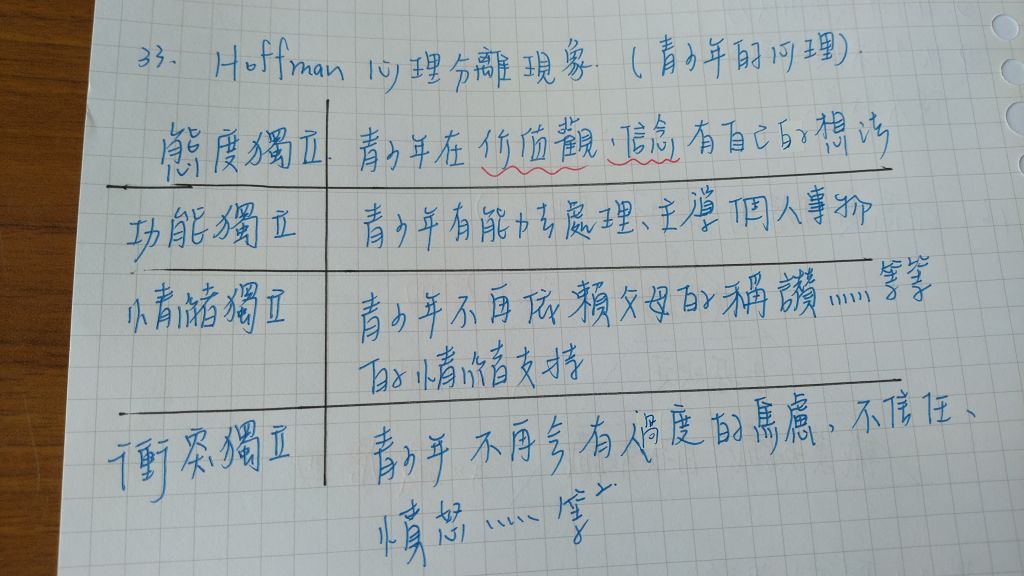 33. Hoffman 心理分離現象. (青少年的心理).
態度獨立. 青少年在价值觀、信念有自己的想法
功能獨立 青少年有能力去處理、主導個人事物
情緒獨立 青少年不再依賴父母的稱讚......等等
的情緒支持
衝突獨立 青少年不再會有過度的焦慮、不信任、
憤怒......等